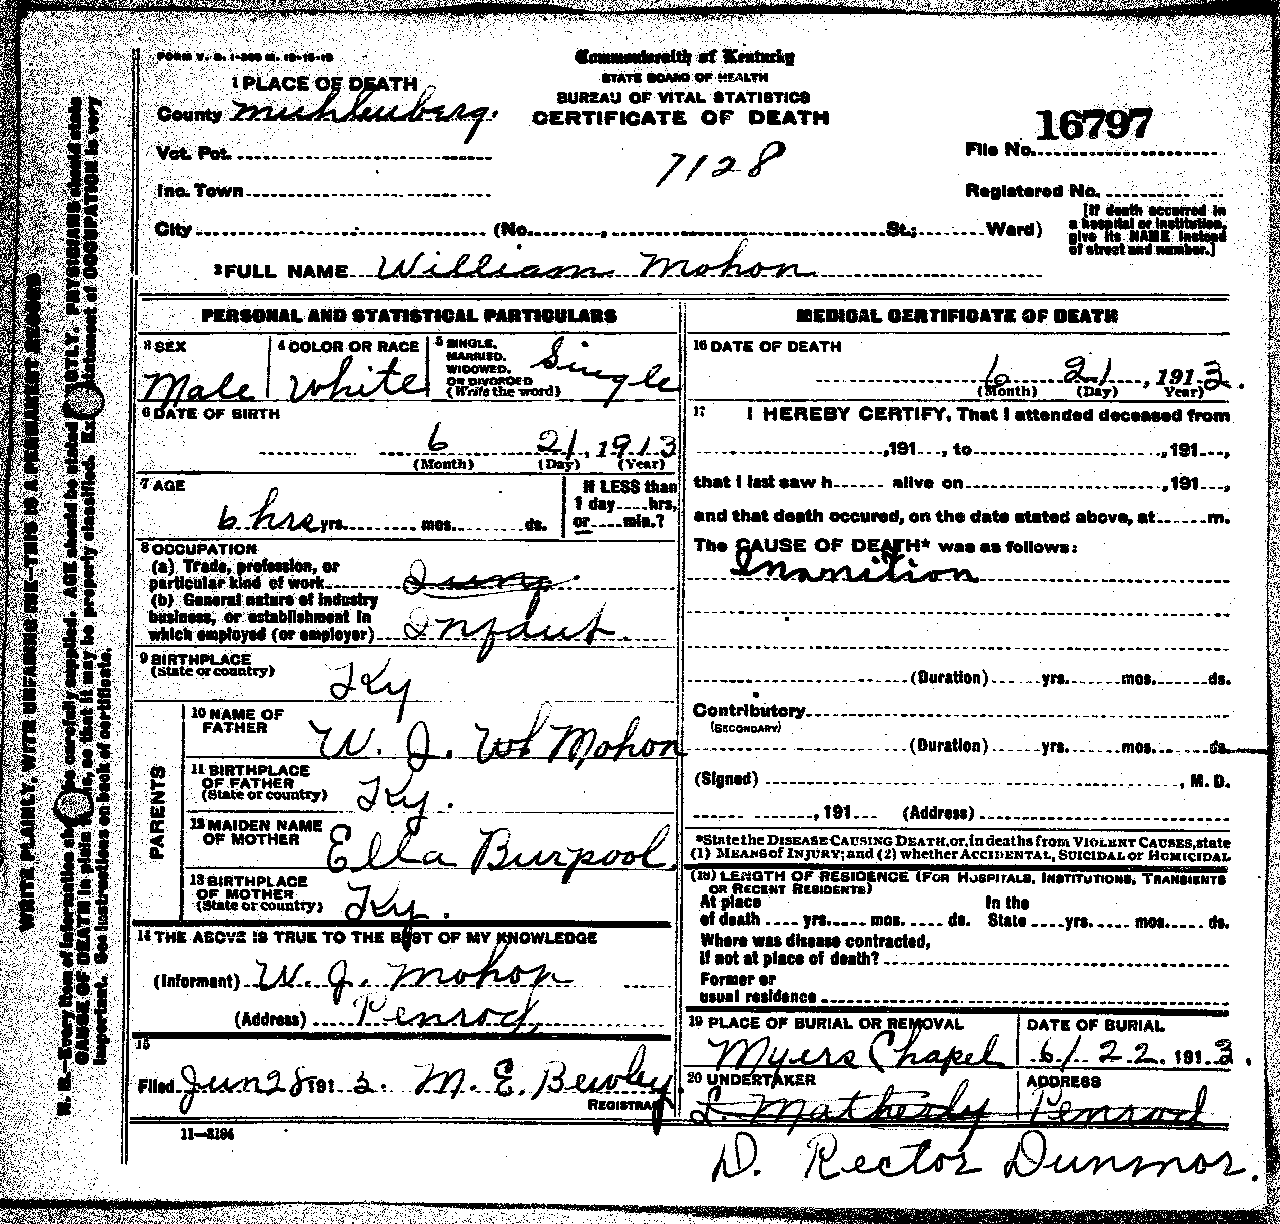 FORM V. S. 1-300 M. 12-15-12
Commonwealth of Kentucky
STATE BOARD OF HEALTH
BUREAU OF VITAL STATISTICS
CERTIFICATE OF DEATH
1 PLACE OF DEATH
County Muhlenberg.
Vot. Pct.
Inc. Town
City (No. , St.; Ward)
7128
16797
File No.
Registered No.
[If death occurred in
a hospital or institution,
give its NAME instead
of street and number.]
2 FULL NAME William Mohon
PERSONAL AND STATISTICAL PARTICULARS
3 SEX
Male
4 COLOR OR RACE
White
5 SINGLE,
MARRIED,
WIDOWED,
OR DIVORCED
(Write the word)
Single
6 DATE OF BIRTH
6 21, 1913
(Month) (Day) (Year)
7 AGE
6 hrs yrs. mos. ds.
If LESS than
1 day hrs,
or min.?
8 OCCUPATION
(a) Trade, profession, or
particular kind of work
(b) General nature of industry
business, or establishment in
which employed (or employer) Infant.
9 BIRTHPLACE
(State or country)
Ky
PARENTS
10 NAME OF
FATHER
W. J. Mohon
11 BIRTHPLACE
OF FATHER
(State or country)
Ky.
12 MAIDEN NAME
OF MOTHER
Ella Burpool.
13 BIRTHPLACE
OF MOTHER
(State or country)
Ky.
14 THE ABOVE IS TRUE TO THE BEST OF MY KNOWLEDGE
(Informent) W. J. Mohon
(Address) Penrod,
15
Filed Jun 28 191 3. M. E. Bewley
REGISTRAR
11-3194
MEDICAL CERTIFICATE OF DEATH
16 DATE OF DEATH
6 21, 191 3.
(Month) (Day) Year)
17 I HEREBY CERTIFY, That I attended deceased from
,191 , to ,191 ,
that I last saw h alive on ,191 ,
and that death occured, on the date stated above, at m.
The CAUSE OF DEATH* was as follows:
Inanition
(Duration) yrs. mos. ds.
Contributory
(SECONDARY)
(Duration) yrs. mos. ds.
(Signed) , M. D.
, 191 (Address)
*State the DISEASE CAUSING DEATH, or, in deaths from VIOLENT CAUSES, state
(1) MEANS of INJURY; and (2) whether ACCIDENTAL, SUICIDAL or HOMICIDAL
(18) LENGTH OF RESIDENCE (FOR HOSPITALS, INSTITUTIONS, TRANSIENTS
OR RECENT RESIDENTS)
At place In the
of death yrs. mos. ds. State yrs. mos. ds.
Where was disease contracted,
if not at place of death?
Former or
usual residence
19 PLACE OF BURIAL OR REMOVAL
Myers Chapel
DATE OF BURIAL
6/22, 191 3.
20 UNDERTAKER
L. Matherly
ADDRESS
Penrod
D. Rector Dunmor.
WRITE PLAINLY, WITH UNFADING INK—THIS IS A PERMANENT RECORD
N. B.—Every item of information should be carefully supplied. AGE should be stated EXACTLY. PHYSICIANS should state
CAUSE OF DEATH in plain terms, so that it may be properly classified. Exact statement of OCCUPATION is very
important. See instructions on back of certificate.